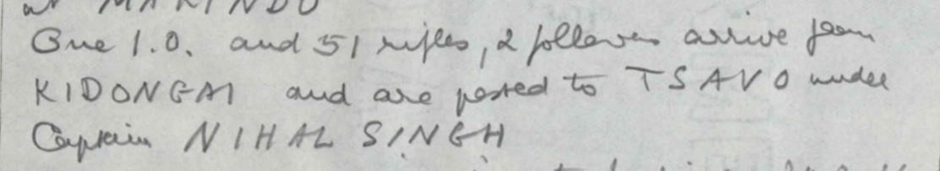 at MAKINDO
One I.O. and 51 rifles, 2 followers arrive from
KIDONGAI and are posted to TSAVO under
Captain NIHAL SINGH